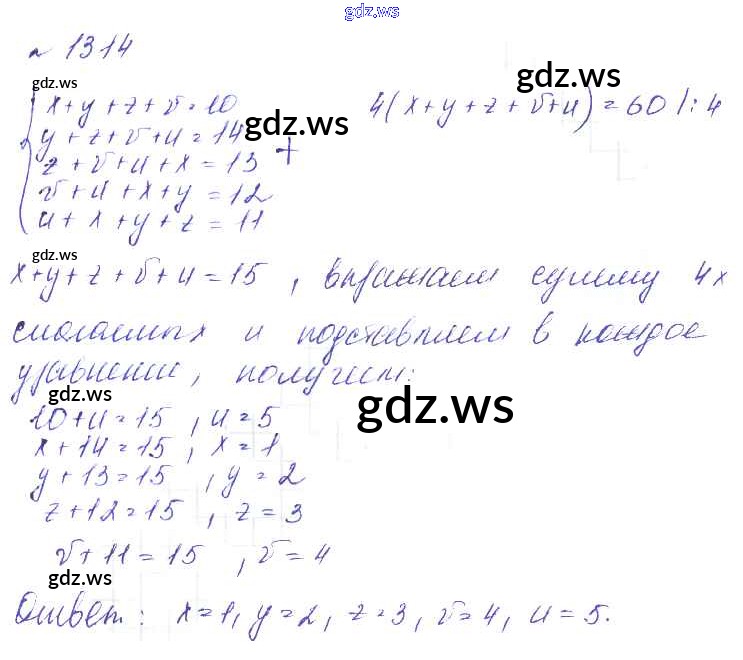 gdz.ws
№ 1314
gdz.ws
x+y+z+v=10
y+z+v+u=14
z+v+u+x=13
v+u+x+y=12
u+x+y+z=11
+
gdz.ws
gdz.ws
4(x+y+z+v+u)=60 /:4
gdz.ws
x+y+z+v+u=15, выражаем сумму 4х
слагаемых и подставляем в каждое
уравнении, получим:
gdz.ws
gdz.ws
10+u=15, u=5
x+14=15, x=1
y+13=15, y=2
z+12=15, z=3
v+11=15, v=4
gdz.ws
Ответ: x=1, y=2, z=3, v=4, u=5.